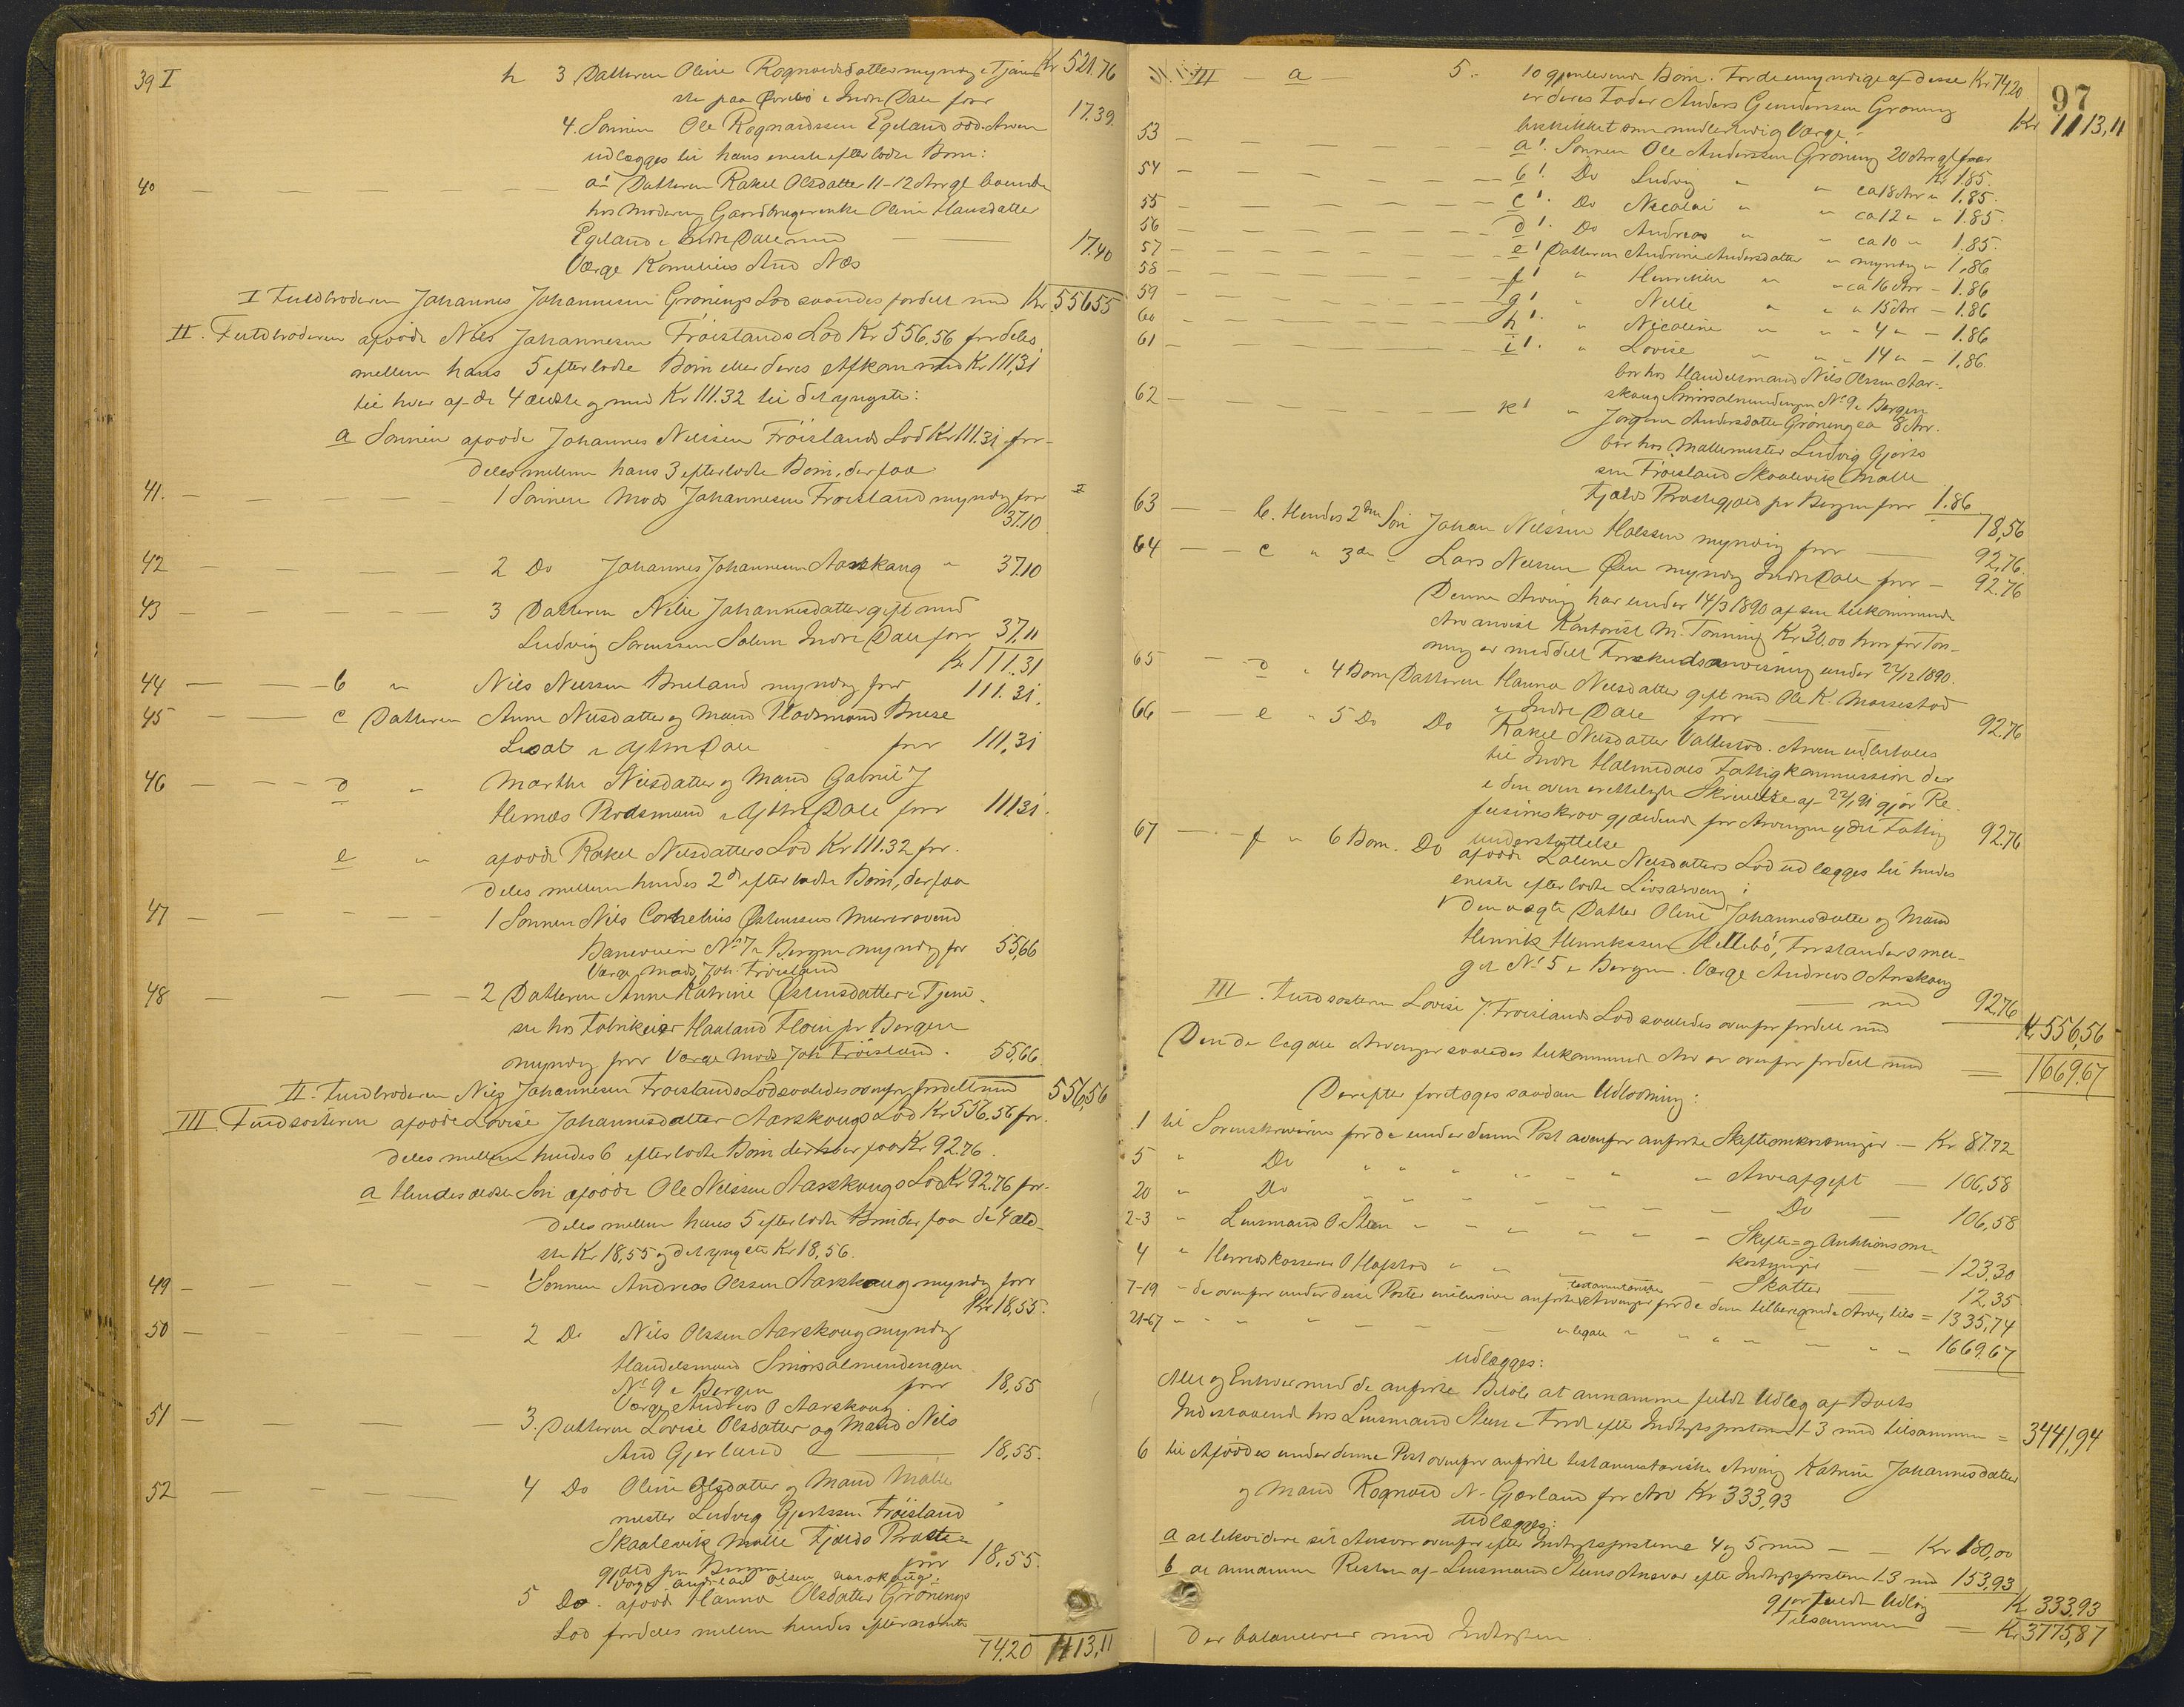 39 I h 3 Datteren Oline Rognaldsdatter myndig i Tjene- Kr 521.76
ste paa i Indre Dale faar 17.39.
4. Sønnen Ole Rognaldssen Egeland død. Arven
udlægges til hans eneste efterladte Barn:
40 — a1 Datteren Rakel Olsdatter 11-12 Aar gl boende
hos Moderen Gaardbrugerenke Oline Hansdatter
Egeland i Indre Dale med — 17.40
Værge Kornelius And Næs
I Fuldbroderen Johannes Johannesen Grønings Lod saaledes fordelt med Kr 556.55
II. Fuldbroderen afdøde Nils Johannesen Frøislands Lod Kr 556.56 fordeles
mellem hans 5 efterladte Børn eller deres Afkom med Kr 111,31
til hver af de 4 ældste og med Kr 111.32 til det yngste:
a Sønnen afdøde Johannes Nilssen Frøislands Lod Kr 111.31 for-
deles mellem hans 3 efterladte Børn, der faa
41. — 1 Sønnen Mads Johannesen Frøisland myndig faar
37.10
42 — 2 Do Johannes Johannesen Aarskaug " 37.10
43 — 3 Datteren Nille Johannesdatter gift med
Ludvig Sørenssen Solem Indre Dale faar 37,11
Kr 111.31
44 — b " Nils Nilssen Breland myndig faar 111.31.
45 — c Datteren Anne Nilsdatter og Mand Pladsmand Brese
i Ytre Dale faar 111,31
46 — d " Marthe Nilsdatter og Mand Gabriel J
Hernæs i Ytre Dale faar 111.31.
e " afdøde Rakel Nilsdatters Lod Kr 111.32 for-
deles mellem hendes 2de efterladte Børn, der faa
47 — 1 Sønnen Nils Cornelius Østensen Murersvend
No 7 i Bergen myndig faar 55,66
Værge Mads Joh. Frøisland
48 — 2 Datteren Anne Katrine Østensdatter i Tjene-
ste hos Fabrikeier Haaland pr Bergen
myndig faar Værge Mads Joh Frøisland. 55,66.
II. Fuldbroderen Nils Johannesen Frøislands Lod saaledes ovenfor fordelt med 556,56
III Fuldsøsteren afdøde Lovise Johannesdatter Aarskougs Lod Kr 556.56 for-
deles mellem hendes 6 efterladte Børn der hver faar Kr 92.76.
a Hendes ældste Søn afdøde Ole Nilssen Aarskougs Lod Kr 92.76 for-
deles mellem hans 5 efterladte Børn der faa de 4 æld-
ste Kr 18,55 og det yngste Kr 18,56.
49 — 1 Sønnen Andreas Olssen Aarskoug myndig faar
Kr 18,55.
50 — 2 Do Nils Olssen Aarskoug myndig
Handelsmand Smørsalmendingen
No 9 i Bergen faar 18,55
Værge Andreas O Aarskoug
51 — 3. Datteren Lovise Olsdatter og Mand Nils
And Gjerland — 18,55.
52 — 4 Do Oline Olsdatter og Mand Mølle
mester Ludvig Gjertssen Frøisland
Skaalevik Mølle Fjelds Præste-
gjeld pr Bergen faar 18,55.
Værge Andreas Olsen Aarskoug.
5 Do. afdøde Hanna Olsdatter Grønings
Lod fordeles mellem hendes efternævnte
74.20 1113,11
97
III — a — 5. 10 gjenlevende Børn. For de umyndige af disse Kr 74.20
er deres Fader Anders Gundersen Grøning Kr 1113,11
beskikket som midlertidig Værge:
53 — a1. Sønnen Ole Anderssen Grøning 20 Aar gl faar
Kr 1.85.
54 — b1. Do Ludvig " " ca 18 Aar " 1.85.
55 — c1. Do Nicolai " " ca 12 " " 1.85.
56 — d1. Do Andreas " " ca 10 " 1.85.
57 — e1 Datteren Andrine Andersdatter " myndig " 1,86
58 — f1 " Henrikke " " ca 16 Aar - 1.86
59 — g1 " Nille " " " 15 Aar - 1.86
60 — h1. " Nicoline " " " 4 " - 1.86
61 — i1. " Lovise " " " 14 " - 1.86.
bor hos Handelsmand Nils Olssen Aar-
skoug Smørsalmendingen No 9 i Bergen
62 — k1 " Jørgine Andersdatter Grøning ca 8 Aar.
bor hos Møllemester Ludvig Gjerts
sen Frøisland Skaalevik Mølle
Fjelds Præstegjeld pr Bergen faar 1.86
18,56
63 — b. Hendes 2den Søn Johan Nilssen Halssen myndig faar — 92,76.
64 — c " 3die " Lars Nilssen Øen myndig Indre Dale faar - 92.76
Denne Arving har under 14/3 1890 af sin tilkommende
Arv anvist Kontorist M. Tonning Kr 30.00 hvorfor Ton-
ning er meddelt Forskudsanvisning under 22/12 1890.
65 — d " 4 Barn Datteren Hanna Nilsdatter gift med Ole K. Massestad
i Indre Dale faar — 92.76
66 — e " 5 Do Do Rakel Nilsdatter Valtestad. Arven udbetales
til Indre Holmedals Fattigkommission der
i den oven Skrivelse af 22/1 91 gjør Re-
fusionskrav gjældende for Arvingen ydet Fattig
understøttelse 92.76
67 — f " 6 Barn. Do afdøde Laline Nilsdatters Lod udlægges til hendes
eneste efterladte Livsarving:
1 den uægte Datter Oline Johannesdatter og Mand
Henrik Henrikssen Hellebø, Forstandersmu-
get No 5 i Bergen. Værge Andreas O Aarskoug
— med 92.76
III. Fuldsøsteren Lovise J. Frøislands Lod saaledes ovenfor fordelt med Kr 556,56
Den de legale Arvinger saaledes tilkommende Arv er ovenfor fordelt med = 1669.67
Derefter foretages saadan Udlodning:
1 til Sorenskriveren for de under denne Post ovenfor anførte Skifteomkostninger — Kr 87.72
5 " Do " " " " " " " Arveafgift — 106,58
20 " Do " " " " " " " Do — 106,58
2-3 " Lensmand O Steen " " " " " " Skifte= og Auktionsom-
kostninger — 123,30
4 " Herredskasserer O Hafstad " " " Skatter — 12,35.
7-19 " de ovenfor under disse Poster inclusive anførte testamentariske Arvinger for de dem tilberegnede Arv, tils = 1335,74
21-67 " " " " " " legale " " " " " " 1669.67
udlægges:
Alle og Enhver med de anførte Beløb at annamme fuldt Udlæg af Boets
Indestaaende hos Lensmand Steen i Førde efter Indtægtsposterne 1-3 med tilsammen = 3441,94
6 til Afdødes under denne Post ovenfor anførte testamentariske Arving Katrine Johannesdatter
og Mand Rognald N. Gjerland for Arv Kr 333,93
udlægges:
a at likvidere sit Ansvar ovenfor efter Indtægtsposterne 4 og 5 med — Kr 180,00
b at annamme Resten af Lensmand Steens Ansvar efter Indtægtsposterne 1-3 med 153,93
gjør fuldt Udlæg Kr 333,93
Tilsammen = Kr 3775,87
der balancerer med Indtægten.